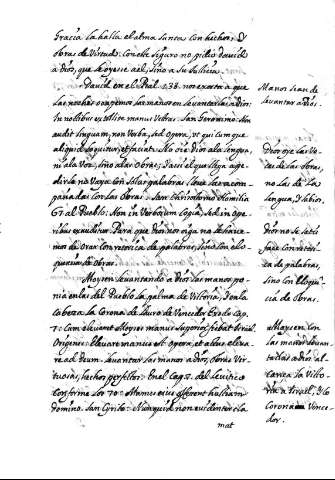 Gracia la halla el alma santa con hechos, y
obras de Virtud. Con este seguro no pidio David
a Dios, que se oyesse a el, sino a su Justicia.
David en el Psal. 138. nos exorta a que
las noches ocupemos las manos en levantarlas a Dios.
In noctibus extollite manus vestras. San Geronimo. Non
audit linguam, non Verba, sed Opera, ut qui cum que
aliquid loquitur, et faciat. No oye Dios a la lengua,
ni a la Voz, sino a las Obras; I assi el que llega a pe-
dirle no Vaya con solas palabras, lleve las acom-
pañadas con las Obras. San Chrisostomo Homilia
al Pueblo: Non in Verborum copia, sed in Ope-
ribus Para que Dios nos oiga no se hace
de Orar con retorica de palabras, sino con elo-
quencia de Obras.
Moysen levantando a Dios las manos po-
nia en las del Pueblo la palma de Vitoria, I en la
cabeza la Corona de Lauro de Vencedor. Exodo Cap.
17. Cum elevaret Moyses manus superior
Origenes: Elevare manus est Opera, et actus eleva-
re ad Deum. Levantar las manos a Dios, Obras Vir-
tuosas, hechos perfectos. En el Cap. 7. del Levitico
conforme los 70:
domino. San Cyrilo:
mat
Manos se an de
levantar a Dios.
Dios oye las Vo-
ces de las Obras,
no las de la
lengua, I labios.
Dios no se satis
face con retori-
ca de palabras,
sino con eloqu-
cia de Obras.
Moysen con
las manos levan-
tadas a Dios al-
canza la Vitto-
ria a Israel, I la
Corona Vence-
dor.